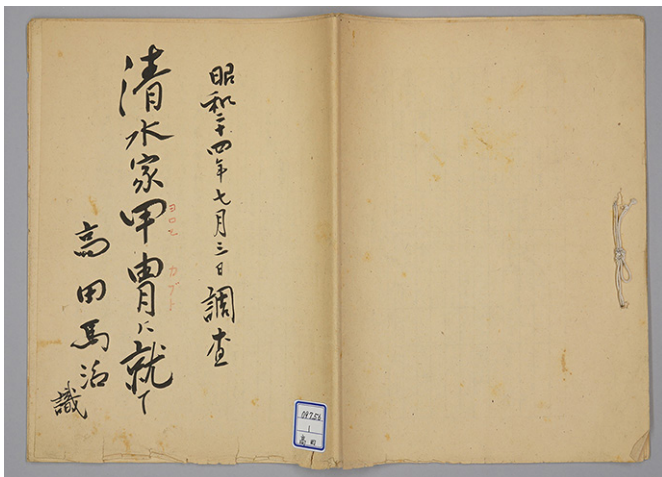 昭和二十四年七月三日調査
清水家甲冑ニ就て
ヨロヒ カブト
高田馬治識
04756
1
高田